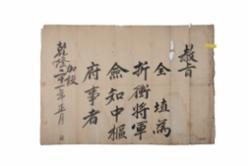 敎旨
全 爲
折衝將軍
僉知中樞
府事者
乾隆 年正月